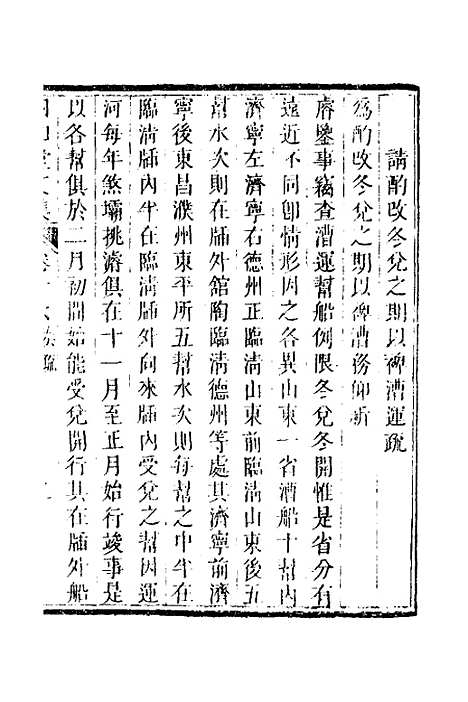 請酌改冬兌之期以裨漕運疏
爲酌改冬兌之期以裨漕務仰祈
睿鑒事竊查漕運幫船例限冬兌冬開惟是省分有
遠近不同卽情形因之各異山東一省漕船十幫內
濟寧左濟寧右德州正臨清山東前臨清山東後五
幫水次則在牐外舘陶臨清德州等處其濟寧前濟
寧後東昌濮州東平所五幫水次則每幫之中半在
臨清牐內半在臨清牐外向來牐內受兌之幫因運
河每年煞壩挑濬俱在十一月至正月始行竣事是
以各幫俱於二月初間始能受兌開行其在牐外船
文集 卷 奏疏